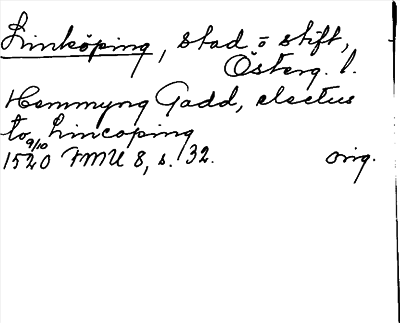 Linköping, stad o stift,
Österg. l.
Hemmyng Gadd, electus
to Lincoping
9/10
1520 FMU 8, s. 32. orig.